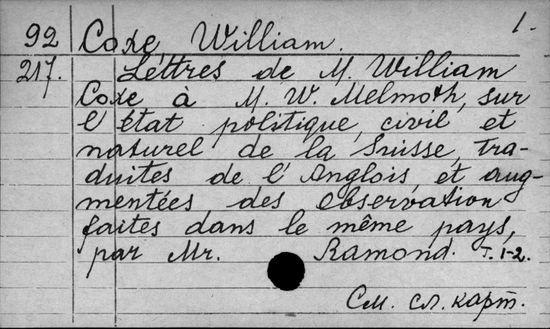 1.
92 Coxe, William.
217. Lettres de M. William
Coxe à M. W. Melmoth, sur
l'état politique, civil et
naturel de la Suisse, tra-
duites de l'Anglois, et aug-
mentées des Observation
faites dans le même pays,
par Mr. Ramond. T. 1-2.
См. сл. карт.